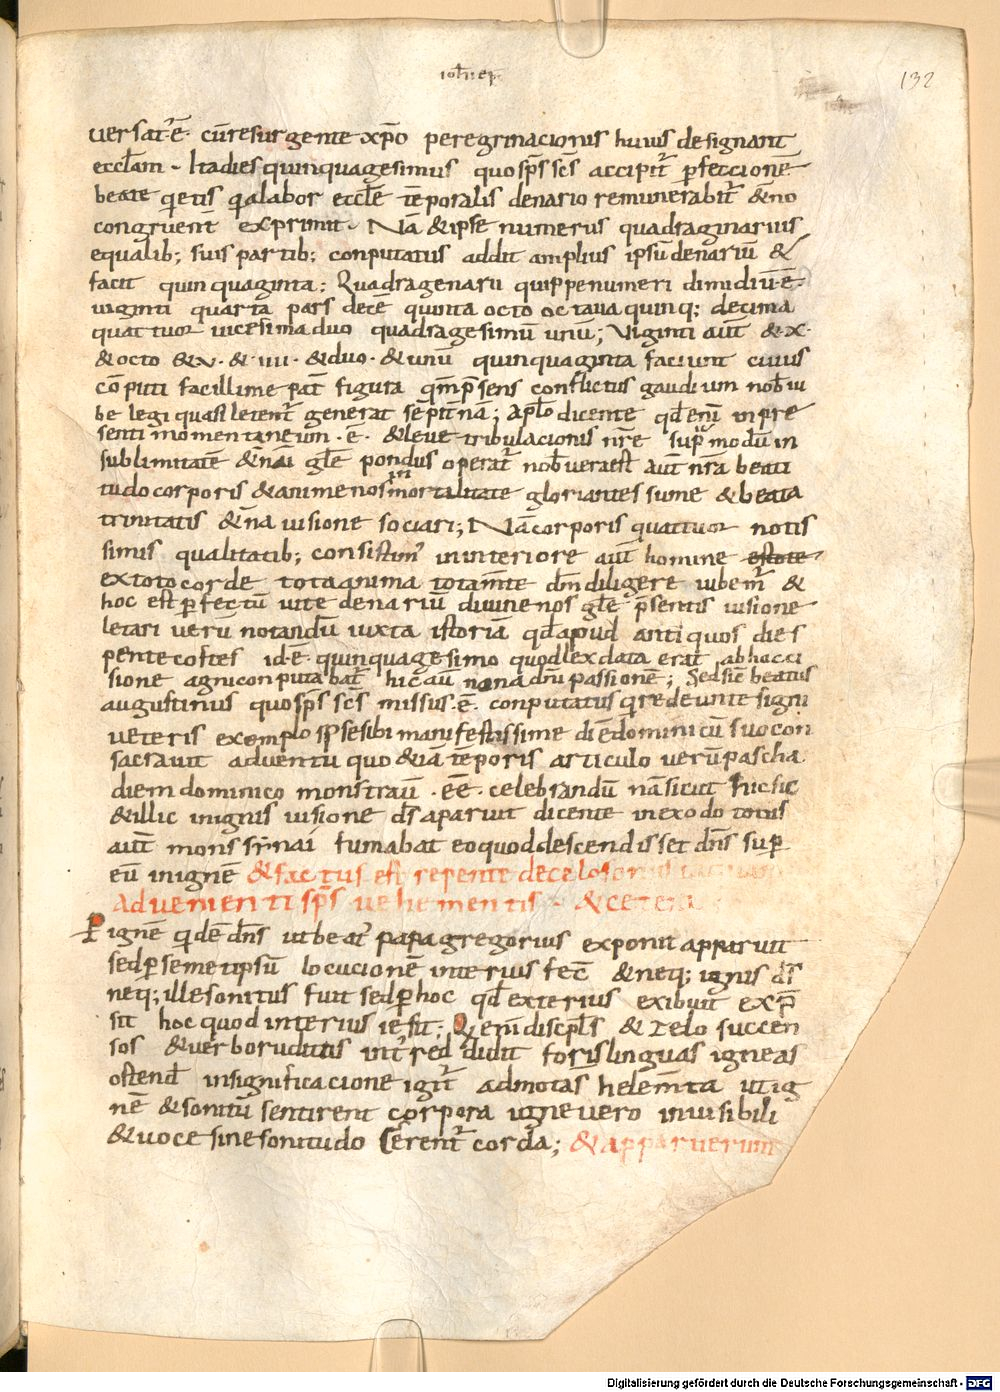 ioh̄ ep̄
132
versat̄ ē· cū resurgente xp̄o peregrinacionis huius designant
eccl̄am · Ita dies quinquagesimus quo sp̄s sc̄s accipit̄ p̄feccionē
beate q̄etis q̄ a labor eccl̄e tēporalis denario remunerabit̄ &n̄o
congruent̄ exprimit· Nā & ipse numerus quadraginarius
equalib; suis partib; conputatus addit amplius ipsū denariū &
facit quinquaginta; Quadragenarii quippe numeri dimidiū ē
uiginti quarta pars decē quinta octo octaua quinq; decima
quattuor uicesima duo quadragesimū unū; Viginti aut̄ & x·
& octo & v· & iiii· & duo· & unū quinquaginta faciunt cuius
cōputi facillime pat̄ figura q̄m p̄sens conflictus gaudium nob̄ iu
be legi quasi letent̄ generat sēpit̄nā; Ap̄lo dicente qd̄ enī in pre
senti momentaneum· ē· & leue tribulacionis nr̄e sup̄ modū in
sublimitatē &n̄ai gl̄e pondus operat̄ nob̄ uera est aut̄ nr̄a beati
tudo corporis & anime nos in mortalitate gloriantes sume & beata
trinitatis &n̄a uisione sociari; Nā corporis quattuor notis
simis qualitatib; consistim̄ in interiore aut̄ homine estote
ex toto corde tota anima tota m̄te dn̄m diligere iubem̄ &
hoc est p̄fectū uite denariū diuine nos gl̄e p̄sentis uisione
letari uerū notandū iuxta istoriā qd̄ apud antiquos dies
pentecostes id·ē· quinquagesimo quod lex data erat ab hocci
sione agni conputabat̄ hic aū non a dn̄i passionē; Sed sic̄ beatus
augustinus quo sp̄s sc̄s missus·ē· conputatus q̄ redeunte signi
ueteris exemplo sp̄s sesibi manifestissime diē dominicū suo con
sacrauit aduentu quo &iā tēporis articulo uerū pascha
diem dominico monstraū ·ēē· celebrandū nā sicut hic sic
& illic in ignis uisione dn̄s aparuit dicente in exodo totus
aut̄ mons sinai fumabat eo quod descendisset dn̄s sup̄
eū in ignē & factus est repente de celo sonus
Aduenienti sp̄s uehementis · & cetera
P ignē q̄dē dn̄s ut beat̄ papa gregorius exponit apparuit
sed p̄ semet ipsū locucionē interius fec̄ & neq; ignis ds̄
neq; ille sonitus fuit sed p̄ hoc qd̄ exterius exibuit exp̄
sit hoc quod interius iesit; Q enī discip̄ls & zelo succen
sos & uerbo ruditatis int̄ reddidit foris linguas igneas
ostend̄ in significacione igit̄ admotas helem̄ta ut ig
nē & sonitū sentirent corpora igne uero inuisibili
& uoce sine sonitu docerent̄ corda; & apparuerunt
Digitalisierung gefördert durch die Deutsche Forschungsgemeinschaft - DFG